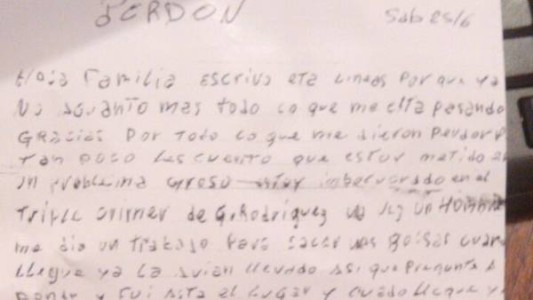 PERDON
Sab 25/6
Hola Familia escrivo eta lineas Por que ya
No aguanto mas todo lo que me esta pasando
GRacias Por Todo lo que me dieron Perdon
Tan poco les cuento que estoy metido
un problema Groso estoy inbolucrado en el
Triple crimen de G. Rodriguez una vez un HOMBRE
me dio un Trabajo Para sacar unas Bolsas cuan
llegue ya la avian llevado asi que Pregunte a
donde y Fui asta el lugar y cuado llegue y